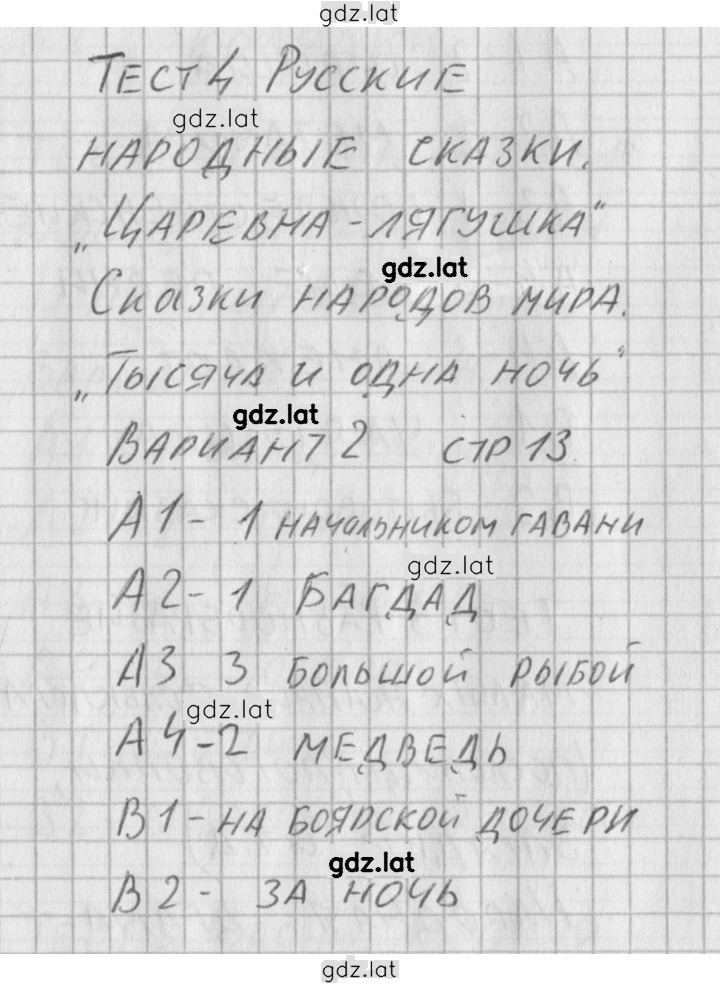 gdz.lat
Тест 4 Русские
gdz.lat
народные сказки.
„Царевна-лягушка“
gdz.lat
Сказки народов мира.
„Тысяча и одна ночь“
gdz.lat
Вариант 2 стр 13
А1- 1 начальником гавани
gdz.lat
А2- 1 Багдад
А3 3 большой рыбой
gdz.lat
А4-2 медведь
В1- на боярской дочери
gdz.lat
В2- за ночь
gdz.lat